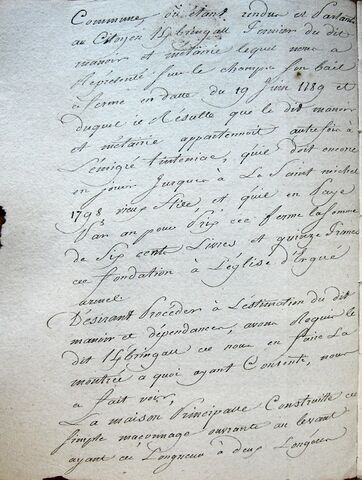 Commune, où étant rendus et Parlant
au Citoyen Hébringall Fermier du dit
manoir et métairie lequel nous a
Représenté sur le champ son bail
à ferme en datte du 19 Juin 1789 et
duquel il Resulte que le dit manoir
et métairie appartenoit autrefois à
L'émigré tinteniac, qu'il doit encore
en jouir Jusques à La Saint michel
1798 vieux Stile et qu'il en Paye
Par an pour Prix de ferme la somme
de Six cents Livres et quinze francs
de fondation à L'église d'Ergué
armel
Désirant Procéder à L'estimation du dit
manoir et dépendances, avons Requis le
dit Hébringall de nous en faire La
montrée à quoi ayant Consenti, nous
a fait voir,
La maison Principalle Construitte en
simple maçonnage ouvrante au levant
ayant de Longueur à deux Longères